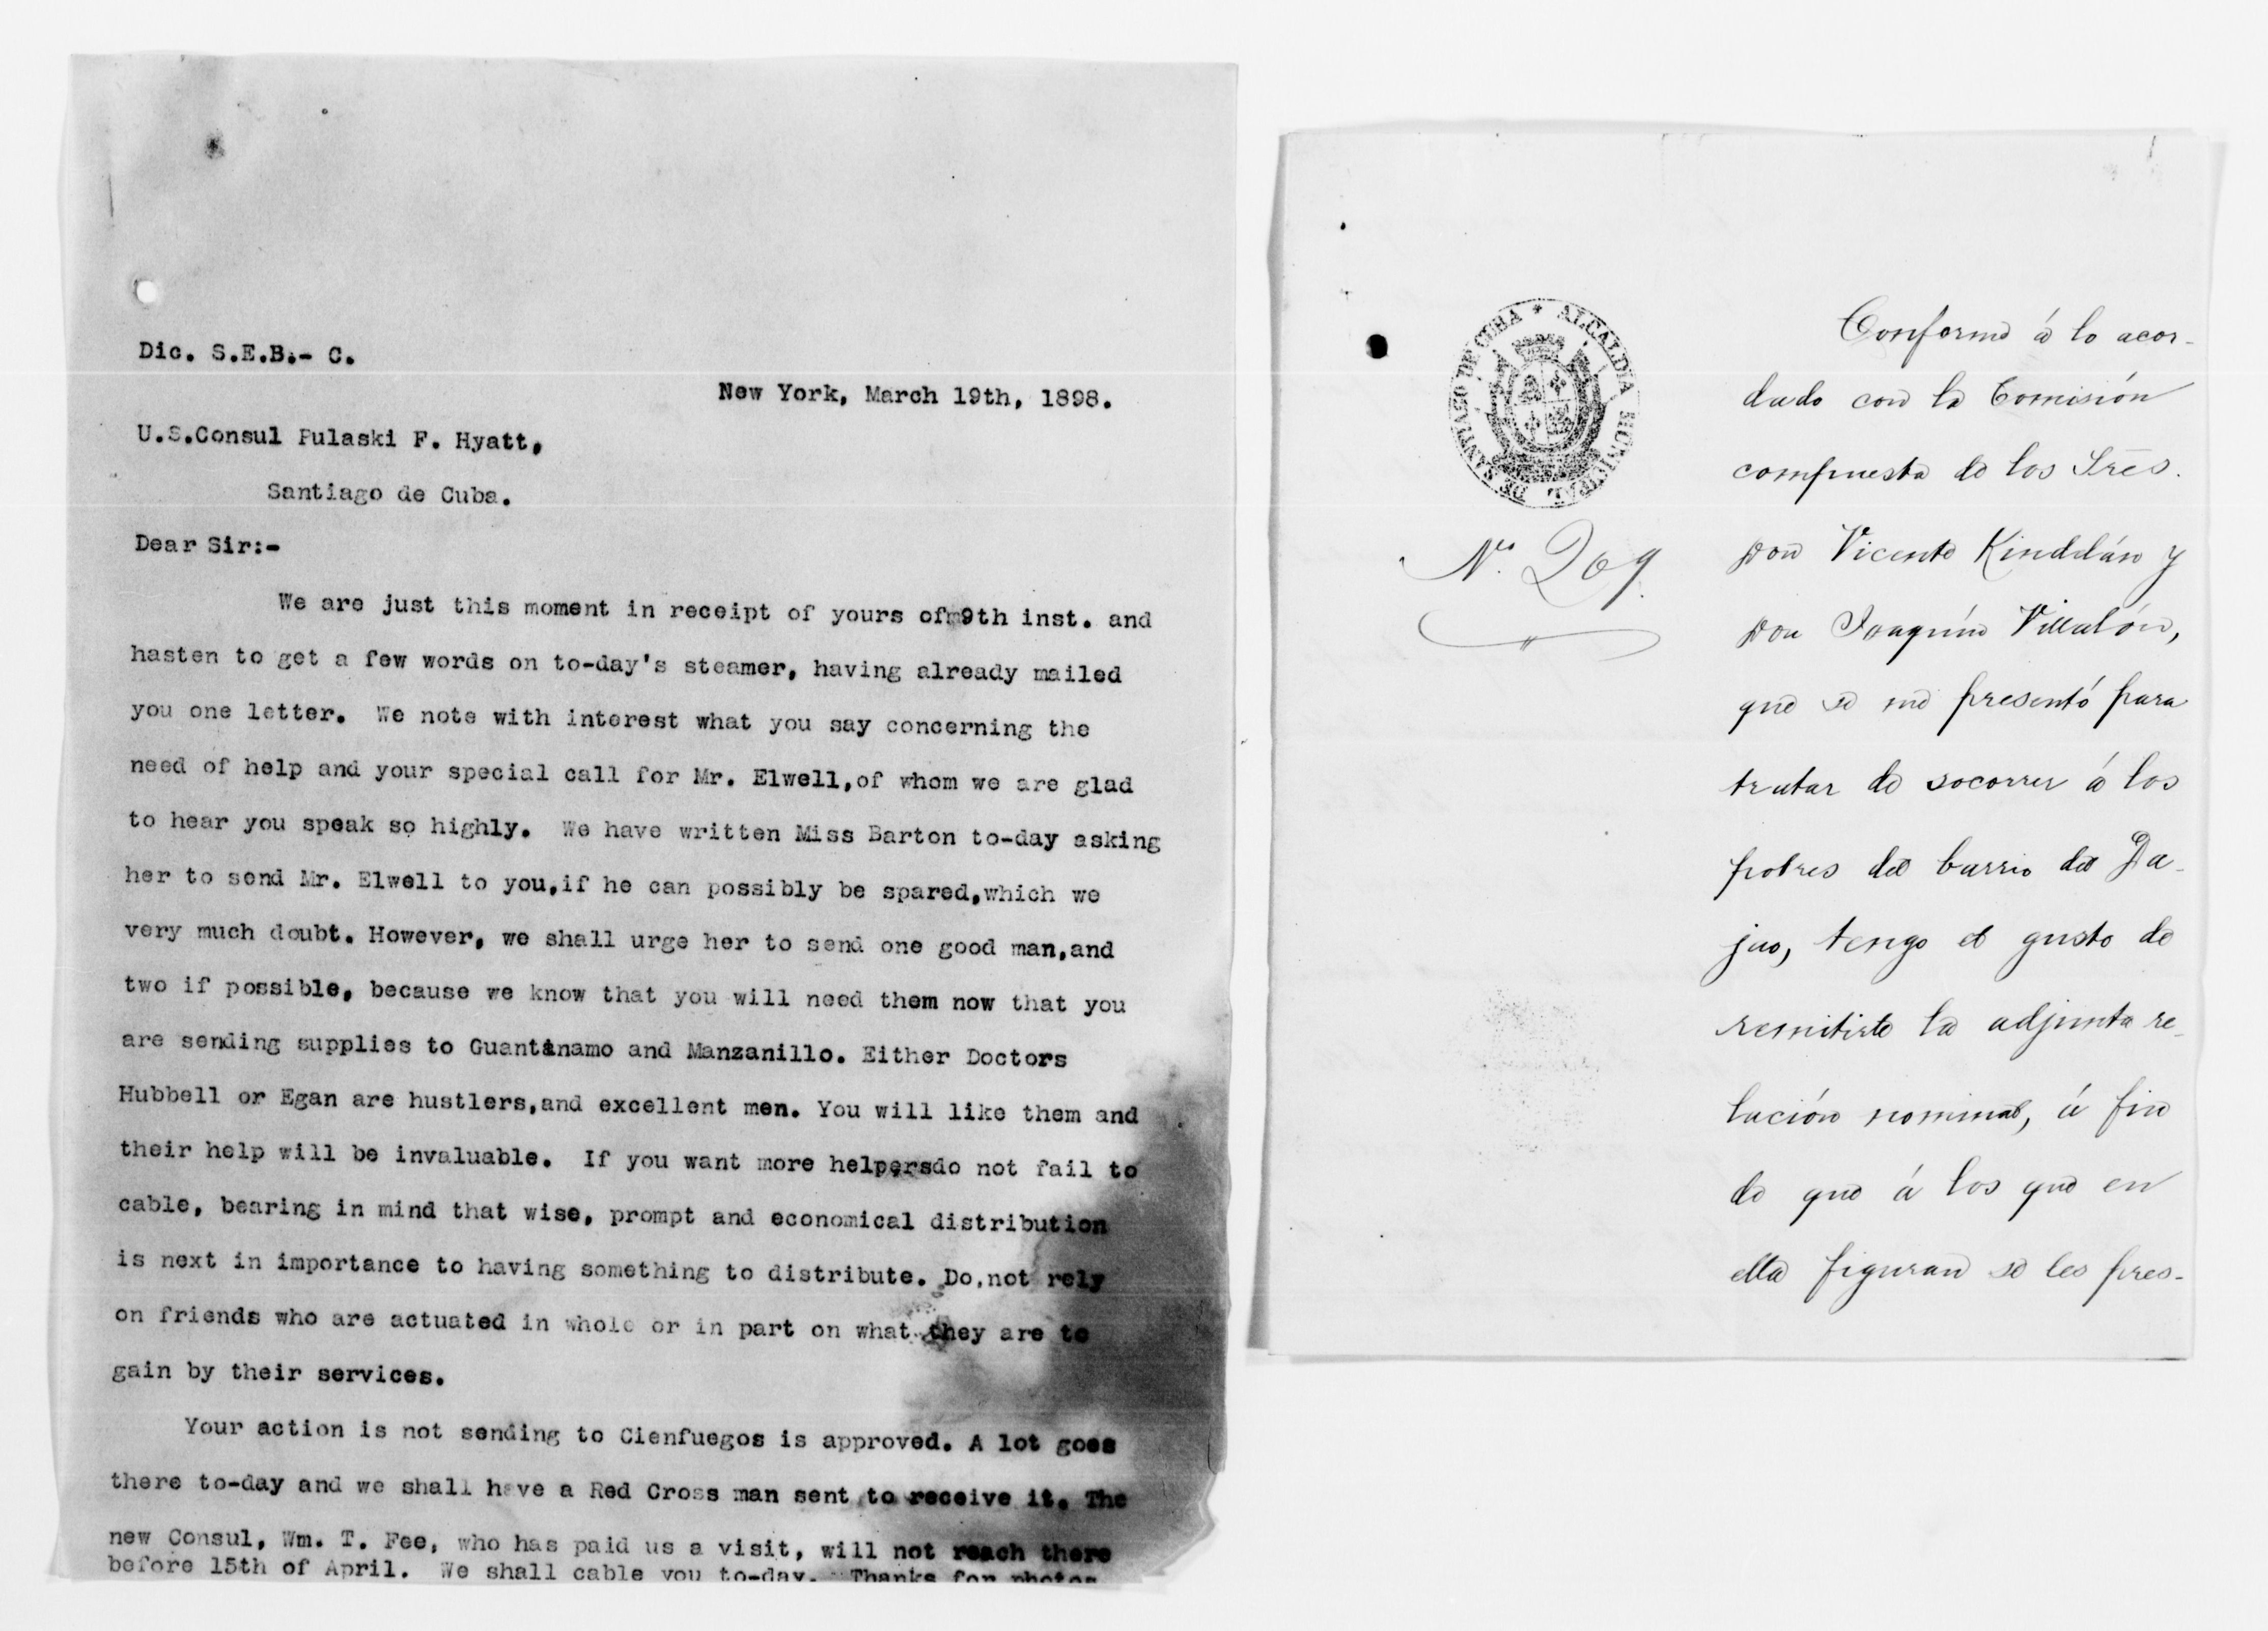 Dic. S.E.B.- C.
New York, March 19th, 1898.
U.S.Consul Pulaski F. Hyatt,
Santiago de Cuba.
Dear Sir:-
We are just this moment in receipt of yours of 9th inst. and
hasten to get a few words on to-day's steamer, having already mailed
you one letter. We note with interest what you say concerning the
need of help and your special call for Mr. Elwell,of whom we are glad
to hear you speak so highly. We have written Miss Barton to-day asking
her to send Mr. Elwell to you,if he can possibly be spared,which we
very much doubt. However, we shall urge her to send one good man,and
two if possible, because we know that you will need them now that you
are sending supplies to Guantanamo and Manzanillo. Either Doctors
Hubbell or Egan are hustlers,and excellent men. You will like them and
their help will be invaluable. If you want more helpersdo not fail to
cable, bearing in mind that wise, prompt and economical distribution
is next in importance to having something to distribute. Do,not rely
on friends who are actuated in whole or in part on what they are to
gain by their services.
Your action is not sending to Cienfuegos is approved. A lot goes
there to-day and we shall have a Red Cross man sent to receive it. The
new Consul, Wm. T. Fee, who has paid us a visit, will not reach there
before 15th of April. We shall cable you to-day. Thanks for photos
ALCALDIA MUNICIPAL DE SANTIAGO DE CUBA *
No. 209.
Conforme á lo acor-
dado con la Comisión
compuesta de los Sres.
Don Vicente Kindelán y
Don Joaquín Villalón,
que se me presentó para
tratar de socorrer á los
pobres del barrio del Da-
jao, tengo el gusto de
remitirle la adjunta re-
lación nominal, á fin
de que á los que en
ella figuran se les pres-